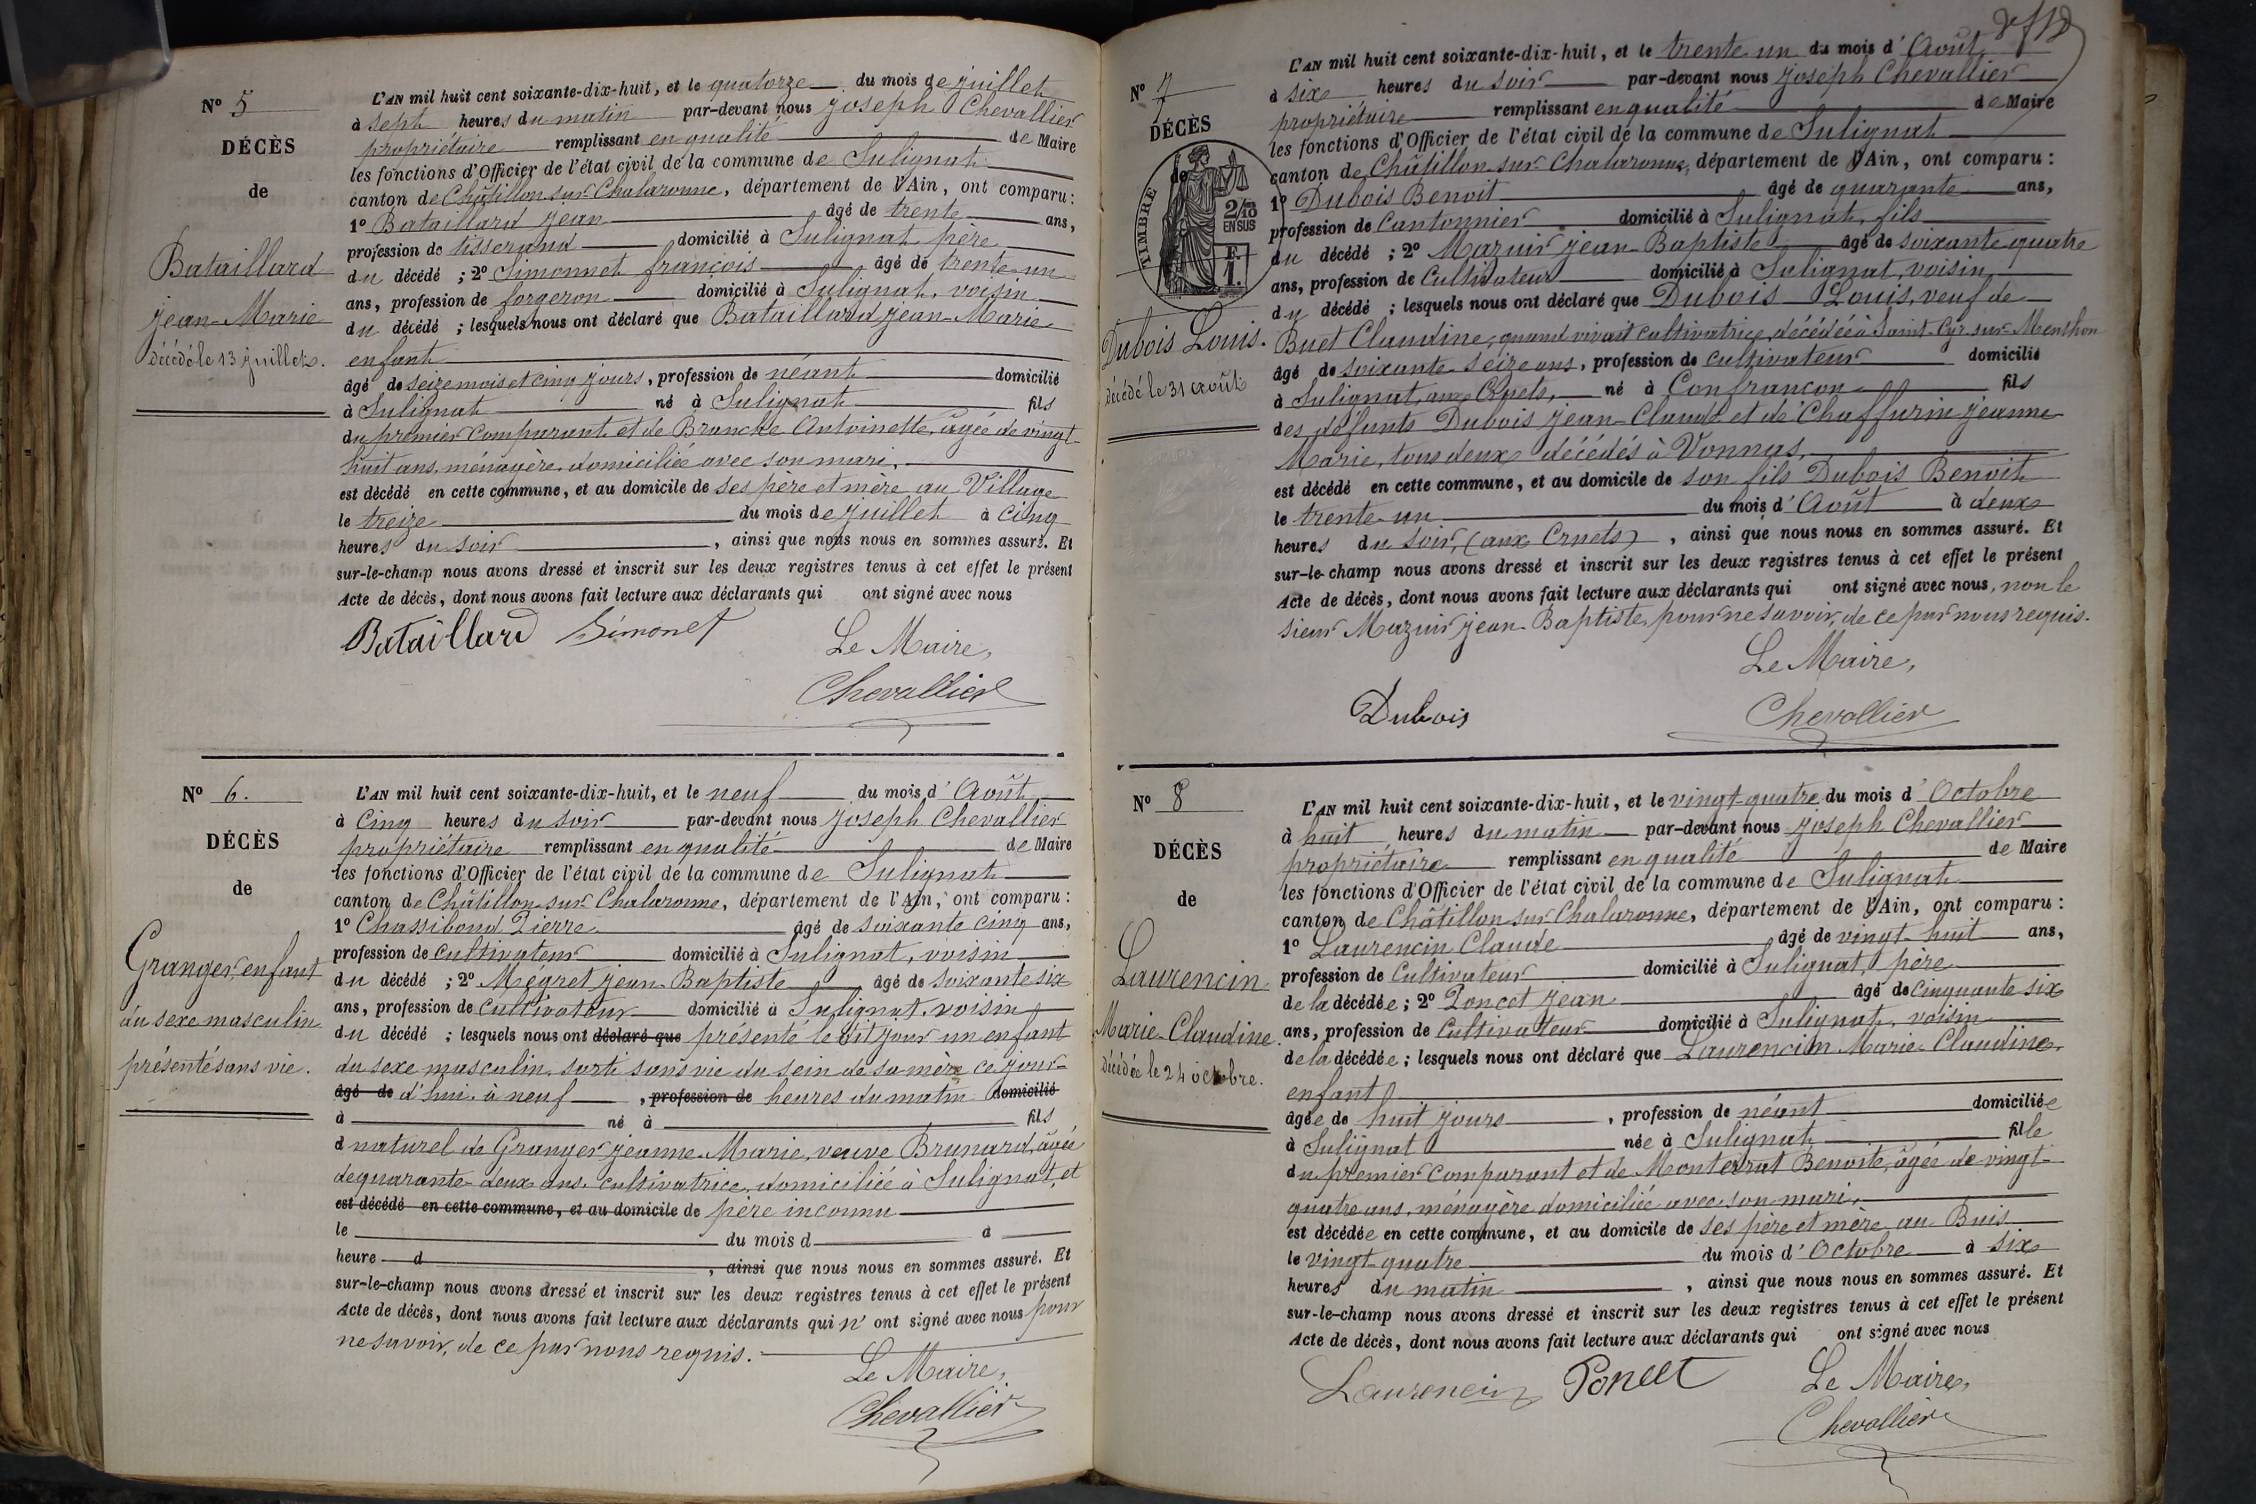 N° 5
DÉCÈS
de
Bataillard
Jean-Marie
décédé le 13 juillet.
L'AN mil huit cent soixante-dix-huit, et le quatorze du mois de juillet
à sept heures du matin par-devant nous Joseph Chevallier
propriétaire remplissant en qualité de Maire
les fonctions d'Officier de l'état civil de la commune de Sulignat
canton de Châtillon sur Chalaronne, département de l'Ain, ont comparu :
1° Bataillard Jean âgé de trente ans,
profession de tisserand domicilié à Sulignat, père
du décédé ; 2° Simonnet françois âgé de trente-un
ans, profession de forgeron domicilié à Sulignat, voisin
du décédé ; lesquels nous ont déclaré que Bataillard Jean-Marie
enfant
âgé de seize mois et cinq jours, profession de néant domicilié
à Sulignat né à Sulignat fils
du premier comparant et de Branche Antoinette, âgée de vingt-
huit ans, ménagère, domiciliée avec son mari,
est décédé en cette commune, et au domicile de ses père et mère au Village
le treize du mois de juillet à cinq
heures du soir, ainsi que nous nous en sommes assuré. Et
sur-le-champ nous avons dressé et inscrit sur les deux registres tenus à cet effet le présent
Acte de décès, dont nous avons fait lecture aux déclarants qui ont signé avec nous
Bataillard Simonet Le Maire,
Chevallier
N° 6.
DÉCÈS
de
Granger, enfant
du sexe masculin
présenté sans vie.
L'AN mil huit cent soixante-dix-huit, et le neuf du mois d'Août
à cinq heures du soir par-devant nous Joseph Chevallier
propriétaire remplissant en qualité de Maire
les fonctions d'Officier de l'état civil de la commune de Sulignat
canton de Châtillon sur Chalaronne, département de l'Ain, ont comparu :
1° Chassiboud Pierre âgé de soixante cinq ans,
profession de cultivateur domicilié à Sulignat, voisin
du décédé ; 2° Mégret Jean-Baptiste âgé de soixante six
ans, profession de cultivateur domicilié à Sulignat, voisin
du décédé ; lesquels nous ont déclaré que présenté le dit jour un enfant
du sexe masculin, sorti sans vie du sein de sa mère ce jour-
âgé de d'hui, à neuf, profession de heures du matin domicilié
à né à fils
d naturel de Granger Jeanne-Marie, veuve Brunard, âgée
de quarante-deux ans, cultivatrice, domiciliée à Sulignat, et
est décédé en cette commune, et au domicile de père inconnu
le du mois d à
heure d, ainsi que nous nous en sommes assuré. Et
sur-le-champ nous avons dressé et inscrit sur les deux registres tenus à cet effet le présent
Acte de décès, dont nous avons fait lecture aux déclarants qui n'ont signé avec nous pour
ne savoir, de ce par nous requis.
Le Maire,
Chevallier
N° 7
DÉCÈS
de
TIMBRE
2/10
EN SUS
F.
1.
Dubois Louis.
décédé le 31 août
L'AN mil huit cent soixante-dix-huit, et le trente un du mois d'Août
à six heures du soir par-devant nous Joseph Chevallier
propriétaire remplissant en qualité de Maire
les fonctions d'Officier de l'état civil de la commune de Sulignat
canton de Châtillon-sur-Chalaronne, département de l'Ain, ont comparu :
1° Dubois Benoit âgé de quarante ans,
profession de Cantonnier domicilié à Sulignat, fils
du décédé ; 2° Mazuir Jean-Baptiste âgé de soixante-quatre
ans, profession de Cultivateur domicilié à Sulignat, voisin
du décédé ; lesquels nous ont déclaré que Dubois Louis, veuf de
Buet Claudine, quand vivait cultivatrice, décédée à Saint-Cyr-sur-Menthon
âgé de soixante-seize ans, profession de cultivateur domicilié
à Sulignat, aux Cruets, né à Confrançon fils
des défunts Dubois Jean-Claude et de Chaffurin Jeanne
Marie, tous deux décédés à Vonnas,
est décédé en cette commune, et au domicile de son fils Dubois Benoit
le trente-un du mois d'Août à deux
heures du soir, (aux Cruets), ainsi que nous nous en sommes assuré. Et
sur-le-champ nous avons dressé et inscrit sur les deux registres tenus à cet effet le présent
Acte de décès, dont nous avons fait lecture aux déclarants qui ont signé avec nous, non le
sieur Mazuir Jean-Baptiste, pour ne savoir, de ce par nous requis.
Le Maire,
Dubois Chevallier
N° 8
DÉCÈS
de
Laurencin
Marie-Claudine.
décédée le 24 octobre.
L'AN mil huit cent soixante-dix-huit, et le vingt-quatre du mois d'Octobre
à huit heures du matin par-devant nous Joseph Chevallier
propriétaire remplissant en qualité de Maire
les fonctions d'Officier de l'état civil de la commune de Sulignat
canton de Châtillon sur Chalaronne, département de l'Ain, ont comparu :
1° Laurencin Claude âgé de vingt-huit ans,
profession de Cultivateur domicilié à Sulignat, père
de la décédée ; 2° Poncet Jean âgé de cinquante six
ans, profession de Cultivateur domicilié à Sulignat, voisin
de la décédée ; lesquels nous ont déclaré que Laurencin Marie-Claudine,
enfant
âgée de huit jours, profession de néant domiciliée
à Sulignat née à Sulignat fille
du premier comparant et de Monterrat Benoite, âgée de vingt-
quatre ans, ménagère domiciliée avec son mari,
est décédée en cette commune, et au domicile de ses père et mère au Buis
le vingt-quatre du mois d'Octobre à six
heures du matin, ainsi que nous nous en sommes assuré. Et
sur-le-champ nous avons dressé et inscrit sur les deux registres tenus à cet effet le présent
Acte de décès, dont nous avons fait lecture aux déclarants qui ont signé avec nous
Laurencin Poncet Le Maire,
Chevallier